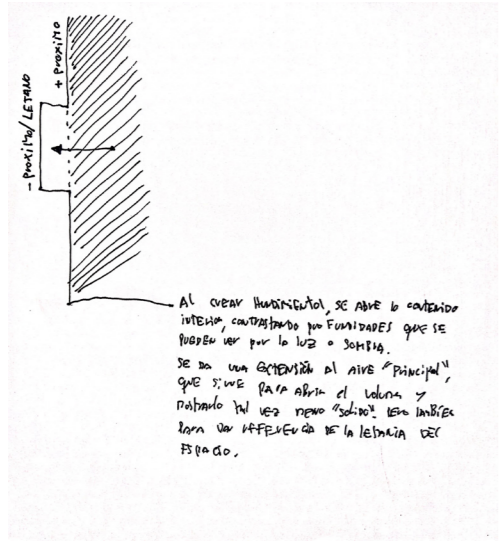 + PROXIMO
- PROXIMO/LEJANO
Al CREAR Hundimientos, SE ABRE lo contenido
interior, contrastando PROFUNDIDADES QUE SE
PUEDEN VER por la LUZ o SOMBRA.
SE DA UNA EXTENSIÓN Al AIRE "Principal",
QUE SIRVE PARA ABRIR el volumen y
mostrarlo tal vez menos "solido". Pero también
PARA DAR REFERENCIA DE LA LEJANIA DEL
ESPACIO.